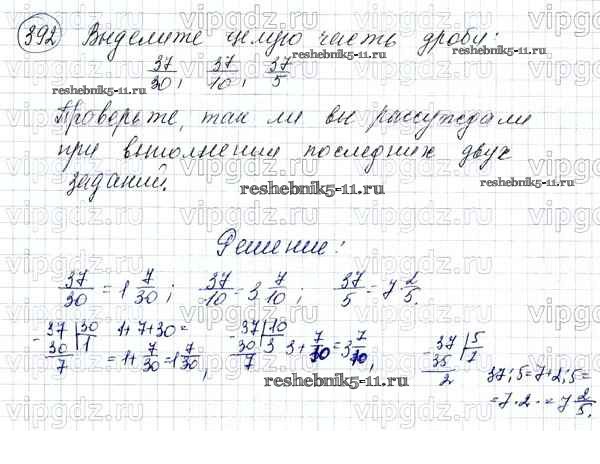 392 Выделите целую часть дроби:
37/30; 37/10; 37/5
Проверьте, так ли вы рассуждали
при выполнении последних двух
заданий.
Решение:
37/30 = 1 7/30; 37/10 = 3 7/10; 37/5 = 7 2/5.
- 37 | 30 1+7÷30= - 37 | 10 - 37 | 5
30 | 1 30 | 3 3 + 7/10 = 3 7/10, 35 | 7
7 = 1 + 7/30 = 1 7/30, 7 2 37:5=7+2:5=
=7·2·=7 2/5.
reshebnik5-11.ru
reshebnik5-11.ru
reshebnik5-11.ru
reshebnik5-11.ru
reshebnik5-11.ru
vipgdz.ru